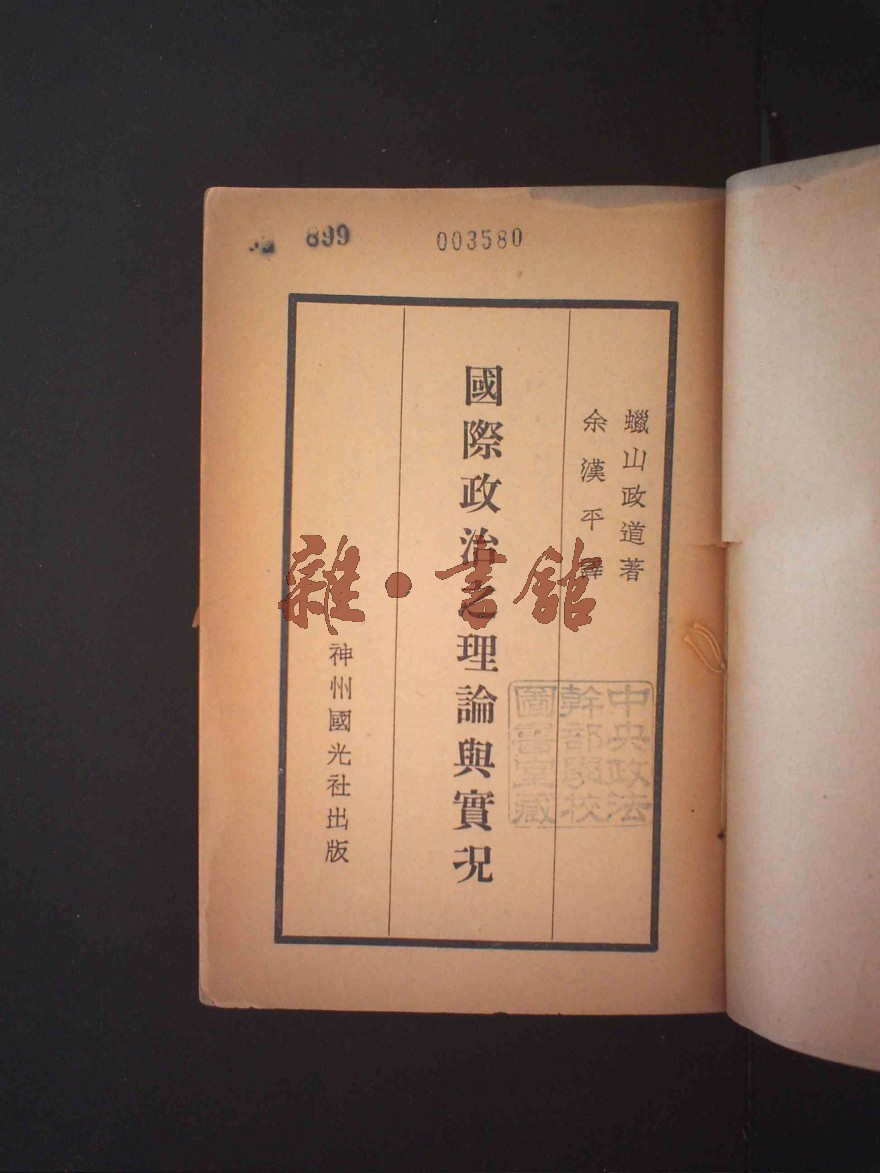 899
003580
蠟山政道著
余漢平譯
國際政治之理論與實況
神州國光社出版
中央政法
幹部學校
圖書室藏
雜·書館